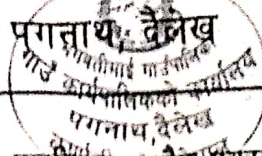 पगनाथ, दैलेख
भगवतीमाई गाउँपालिका
गाउँ कार्यपालिकको कार्यालय
पगनाथ, दैलेख